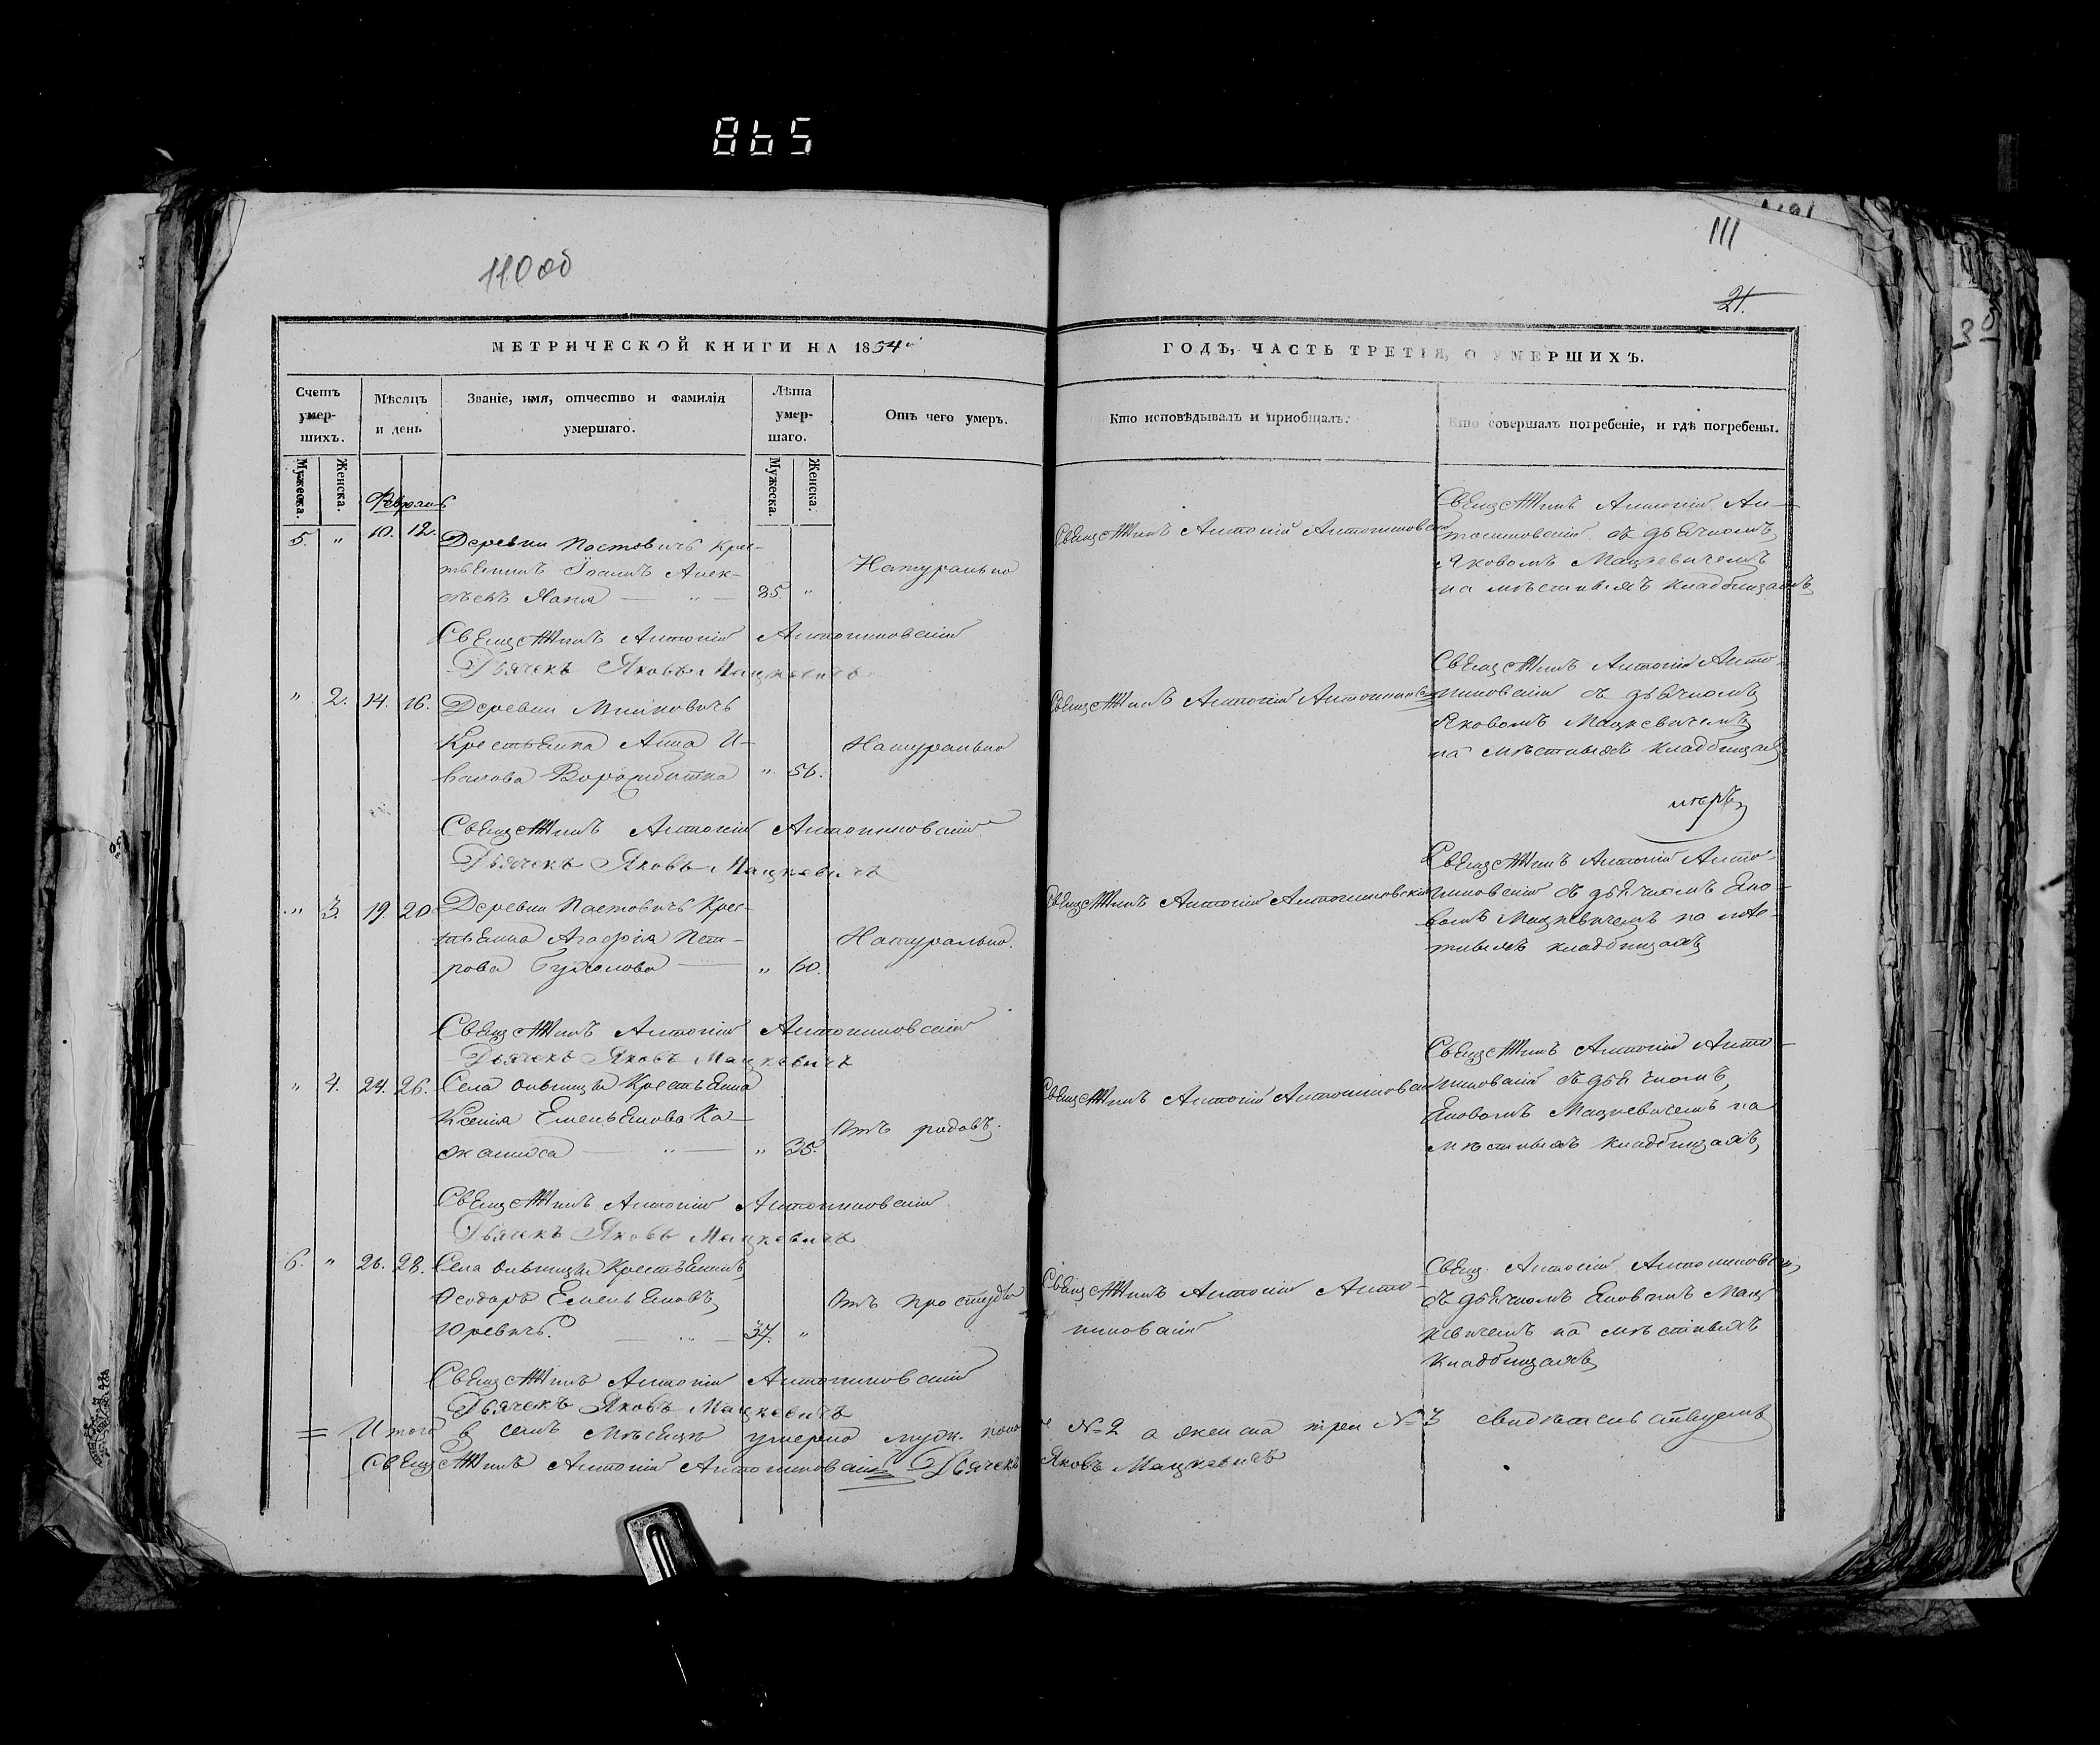 865
110 об
111
21.
МЕТРИЧЕСКОЙ КНИГИ НА 1834й
ГОДЪ, ЧАСТЬ ТРЕТІЯ, О УМЕРШИХЪ.
Счетъ умер-
шихъ.
Мѣсяцъ
и день
Званіе, имя, отчество и фамилія
умершаго.
Лѣта
умер-
шаго.
Отъ чего умеръ.
Кто исповѣдывалъ и пріобщалъ.
Кто совершалъ погребеніе, и гдѣ погребены.
Мужеска.
Женска.
Мужеска.
Женска.
Февраль
5. " 10. 12. Деревни Постовичъ крес-
тьянинъ Іоаннъ Алек-
85. "
Натурально
Священникъ Антоній Антониновскій
Священникъ Антоній Ан-
тониновскій съ дьячкомъ
Яковомъ Мацкевичемъ
на мѣстныхъ кладбищахъ
Священникъ Антоній Антониновскій
Дьячекъ Яковъ Мацкевичъ
" 2. 14. 16. Деревни
Крестьянка Анна И-
ванова " 56.
Натурально
Священникъ Антоній Антониновскій
Священникъ Антоній Анто-
ниновскій съ дьячкомъ
Яковомъ Мацкевичемъ
на мѣстныхъ кладбищахъ
Священникъ Антоній Антониновскій
Дьячекъ Яковъ Мацкевичъ
" 3. 19. 20 Деревни Постовичъ Крес-
тьянка Агафія Пет-
рова " 60.
Натурально.
Священникъ Антоній Антониновскій
Священникъ Антоній Анто-
ниновскій съ дьячкомъ Яко-
вомъ Мацкевичемъ на мѣс-
тныхъ кладбищахъ
Священникъ Антоній Антониновскій
Дьячекъ Яковъ Мацкевичъ
" 4. 24. 26. Села Крестьянка
Ксенія Емельянова Ка-
" 35.
Отъ родовъ.
Священникъ Антоній Антониновскій
Священникъ Антоній Анто-
ниновскій съ дьячкомъ
Яковомъ Мацкевичемъ на
мѣстныхъ кладбищахъ
Священникъ Антоній Антониновскій
Дьячекъ Яковъ Мацкевичъ
6. " 26. 28. Села Крестьянинъ
Феодоръ Емельяновъ
Юревичъ. 37. "
Отъ простуды
Священникъ Антоній Анто-
ниновскій
Свящ. Антоній Антониновскій
съ дьячкомъ Яковомъ Мац-
кевичемъ на мѣстныхъ
кладбищахъ
Священникъ Антоній Антониновскій
Дьячекъ Яковъ Мацкевичъ
= Итого в семъ мѣсяцѣ умерло муж. пола № 2 а женска три № 3 свидѣтельствуемъ
Священникъ Антоній Антониновскій Дьячекъ Яковъ Мацкевичъ